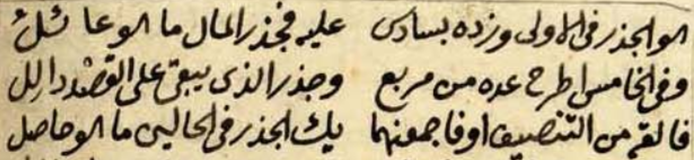 الو الجذر فى الاولى وزده بسادس عليه فجذر المال ما الوعا ئلُ
وفى الخامس اطرح عده من مربع وجذر الذى يبقى على القصْد دا لل
فا لقه من التنصيف او فا جمعنهما يك الجذر فى الحالين ما الوحاصل